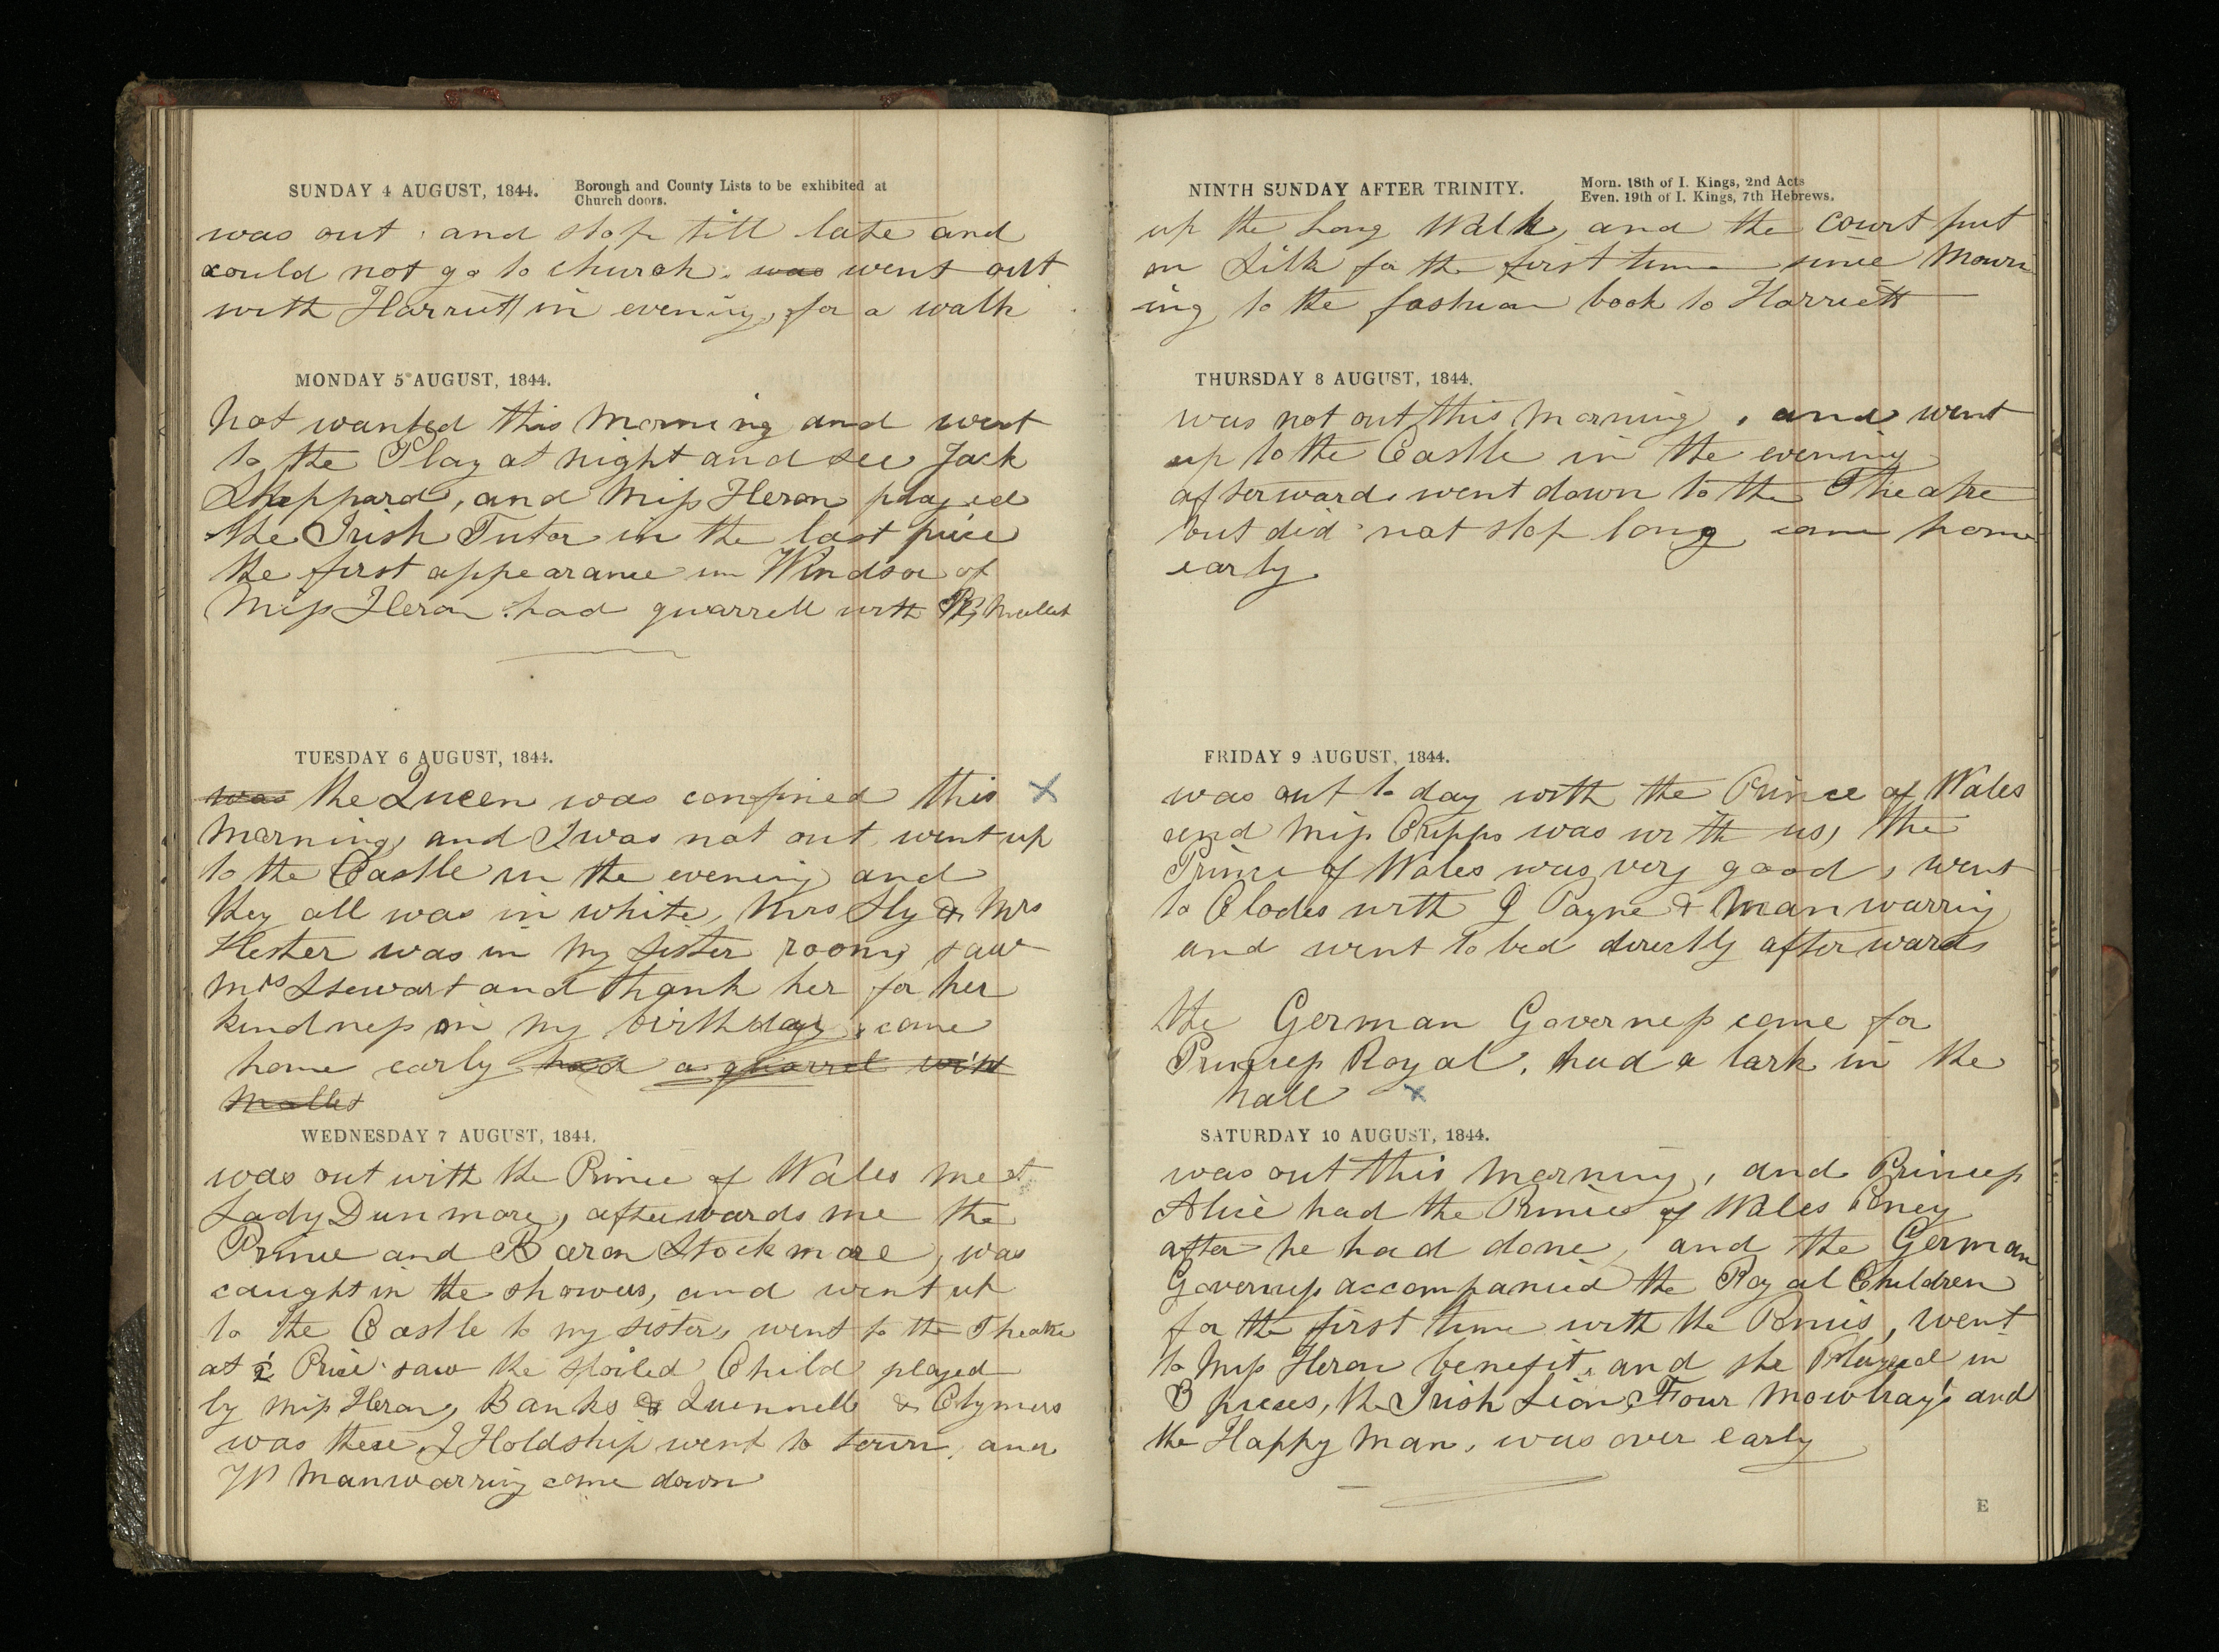 SUNDAY 4 AUGUST, 1844. Borough and County Lists to be exhibited at
Church doors.
was out, and stop till late and
could not go to church. was went out
with Harriett in evening, for a walk
MONDAY 5 AUGUST, 1844.
Not wanted this Morning and went
to the Play at night and see Jack
Sheppard, and Miss Heron played
the Irish Tutor in the last piece
the first appearance in Windsor of
Miss Heron. had quarrell with Mallet
TUESDAY 6 AUGUST, 1844.
was the Queen was confined this X
Morning, and I was not out went up
to the Castle in the evening and
they all was in white, Mrs Sly & Mrs
Hester was in my sister room, saw
Mrs Stewart and thank her for her
kindness on my birthday, come
home early had a quarrel with
Mallet
WEDNESDAY 7 AUGUST, 1844.
was out with the Prince of Wales met
Lady Dunmore, afterwards me the
Prince and Baron Stockmare, was
caught in the showers, and went up
to the Castle to my sisters, went to the Theatre
at ½ Price saw the spoiled Child played
by Miss Heron, Banks & Quennell & Clymers
was there, J Holdship went to town, and
W Manwarring come down
NINTH SUNDAY AFTER TRINITY. Morn. 18th of I. Kings, 2nd Acts
Even. 19th of I. Kings, 7th Hebrews.
up the Long Walk, and the Court put
on Silk for the first time since Mourn
ing, to the fashion book to Harriett
THURSDAY 8 AUGUST, 1844.
was not out this Morning, and went
up to the Castle in the evening
afterwards went down to the Theatre
but did not stop long come home
early.
FRIDAY 9 AUGUST, 1844.
was out to day with the Prince of Wales
and Miss Cripps was with us, the
Prince of Wales was very good, went
to Clodes with J Payne & Manwarring
and went to bed directly afterwards
the German Governess come for
Princess Royal. had a lark in the
hall X
SATURDAY 10 AUGUST, 1844.
was out this Morning, and Princess
Alice had the Prince of Wales Poney
after he had done, and the German
Governess accompanied the Royal Children
for the first time with the Ponies, went
to Miss Heron benefit, and she Played in
3 pieces, the Irish Lion, Four Mowbray's and
the Happy Man, was over early
E